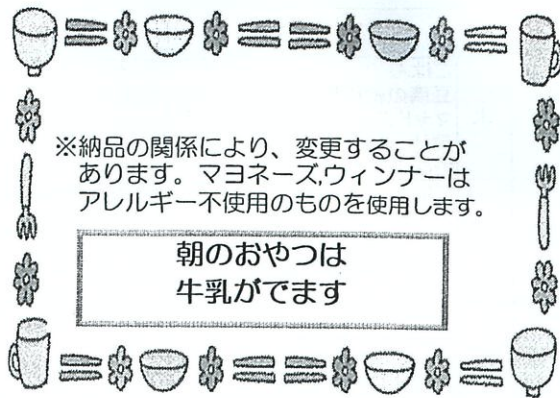 ※納品の関係により、変更することが
あります。マヨネーズ,ウィンナーは
アレルギー不使用のものを使用します。
朝のおやつは
牛乳がでます